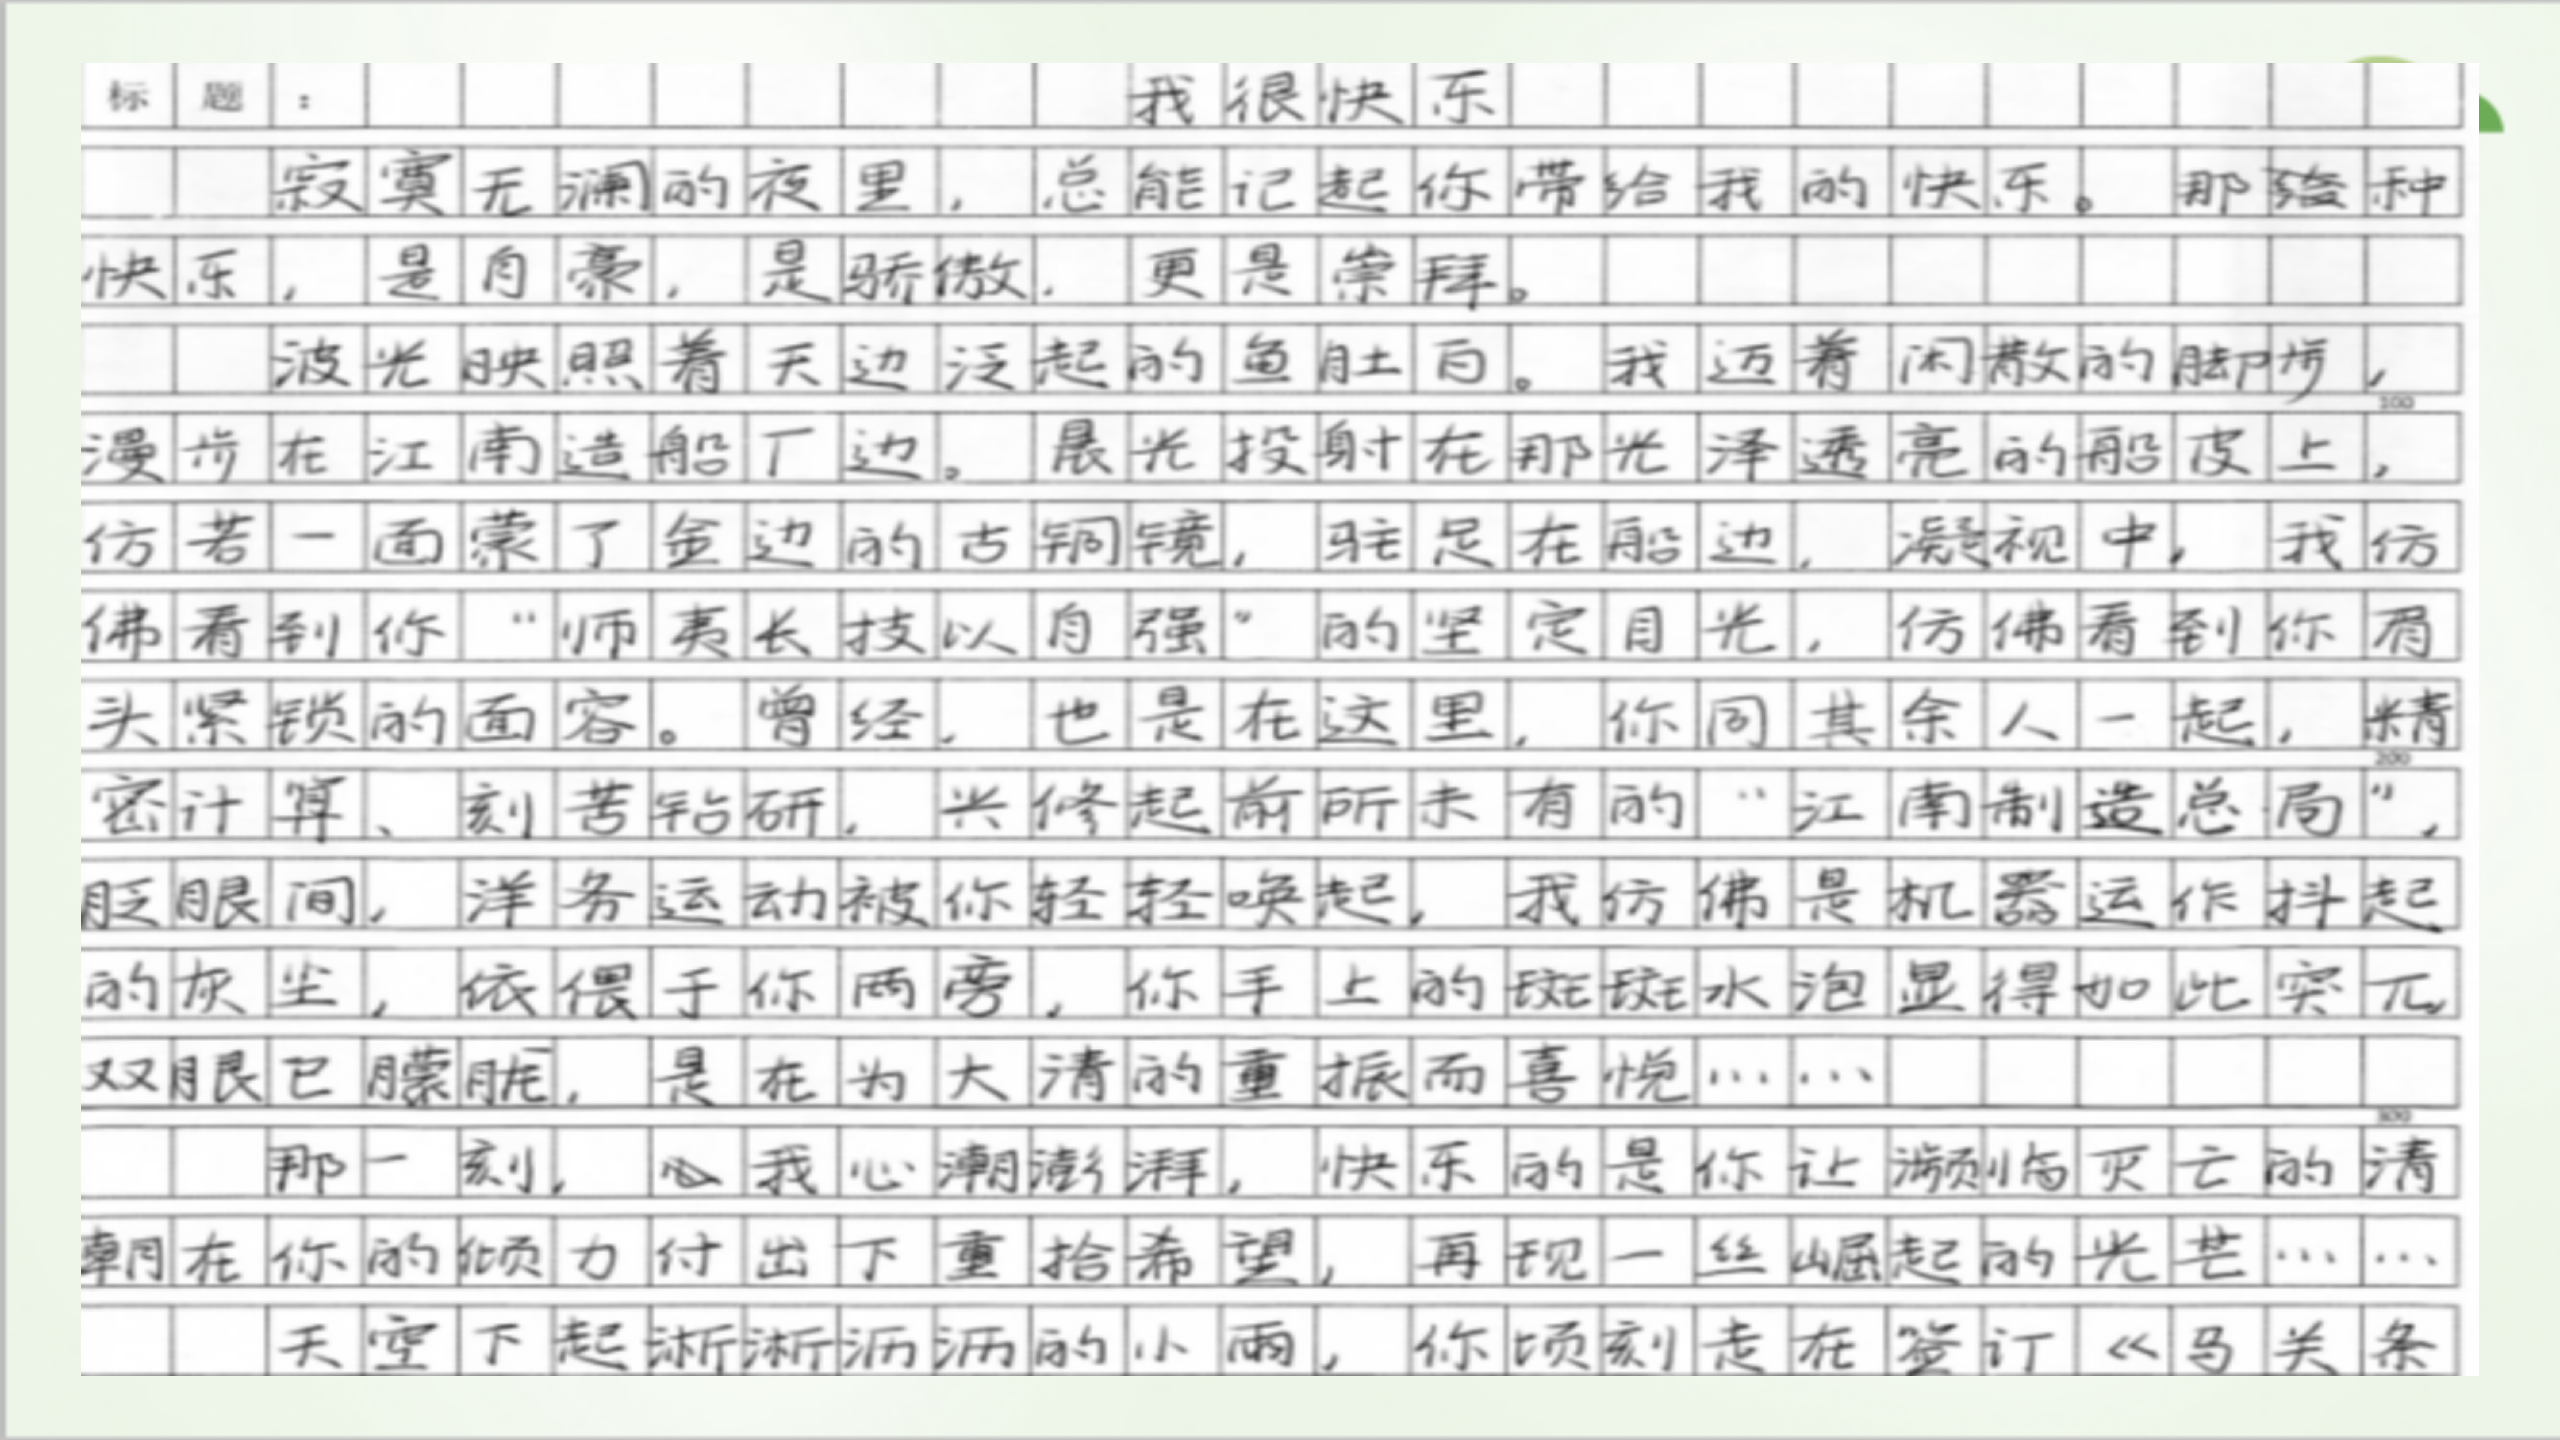 标题：我很快乐
寂寞无澜的夜里，总能记起你带给我的快乐。那种
快乐，是自豪，是骄傲，更是崇拜。
波光映照着天边泛起的鱼肚白。我迈着闲散的脚步，
100
漫步在江南造船厂边。晨光投射在那光泽透亮的船皮上，
仿若一面蒙了金边的古铜镜，驻足在船边，凝视中，我仿
佛看到你“师夷长技以自强”的坚定目光，仿佛看到你眉
头紧锁的面容。曾经，也是在这里，你同其余人一起，精
200
密计算、刻苦钻研，兴修起前所未有的“江南制造总局”，
眨眼间，洋务运动被你轻轻唤起，我仿佛是机器运作抖起
的灰尘，依偎于你两旁，你手上的斑斑水泡显得如此突兀，
双眼已朦胧，是在为大清的重振而喜悦……
300
那一刻，我心潮澎湃，快乐的是你让濒临灭亡的清
朝在你的倾力付出下重拾希望，再现一丝崛起的光芒……
天空下起淅淅沥沥的小雨，你顷刻走在签订《马关条